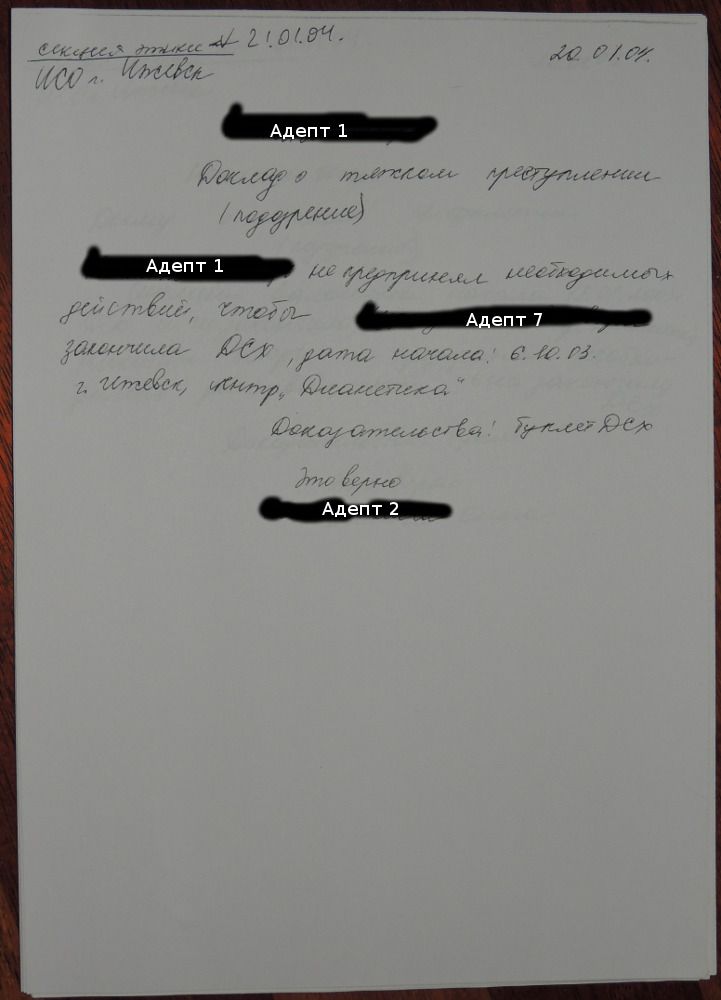 секция этики 21.01.04.
20.01.04.
ИСО г. Ижевск
Адепт 1
Доклад о тяжком преступлении
(подозрение)
Адепт 1 не предпринял необходимых
действий, чтобы Адепт 7
закончила ДСХ, дата начала: 6.10.03.
г. Ижевск, центр „Дианетика"
Доказательства: буклет ДСХ
Это верно
Адепт 2